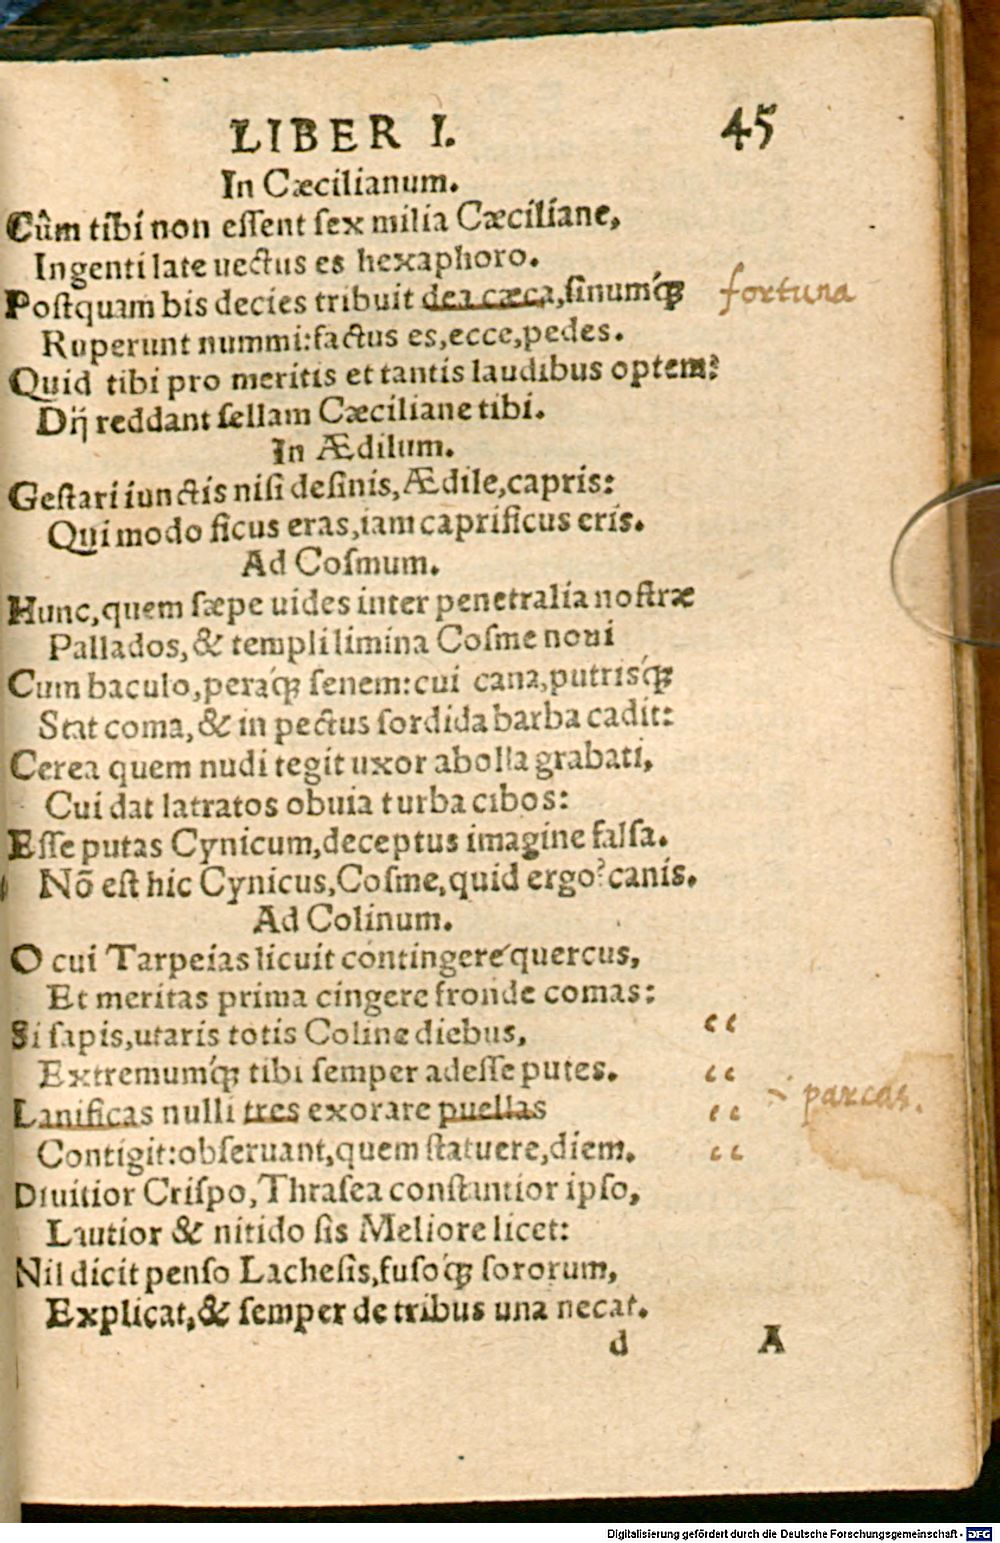 LIBER I. 45
In Cæcilianum.
Cûm tibi non eſſent ſex milia Cæciliane,
Ingenti late uectus es hexaphoro.
Poſtquam bis decies tribuit dea cæca, ſinumq́ꝫ fortuna
Ruperunt nummi: factus es, ecce, pedes.
Quid tibi pro meritis et tantis laudibus optem?
Dij reddant ſellam Cæciliane tibi.
In Ædilum.
Geſtari iunctis niſi deſinis, Ædile, capris:
Qui modo ficus eras, iam caprificus eris.
Ad Coſmum.
Hunc, quem ſæpe uides inter penetralia noſtræ
Pallados, & templi limina Coſme noui
Cum baculo, peraq́ꝫ ſenem: cui cana, putrisq́ꝫ
Stat coma, & in pectus ſordida barba cadit:
Cerea quem nudi tegit uxor abolla grabati,
Cui dat latratos obuia turba cibos:
Eſſe putas Cynicum, deceptus imagine falſa.
Nō eſt hic Cynicus, Coſme, quid ergo? canis.
Ad Colinum.
O cui Tarpeias licuit contingere quercus,
Et meritas prima cingere fronde comas:
Si ſapis, utaris totis Coline diebus, “
Extremumq́ꝫ tibi ſemper adeſſe putes. “
Lanificas nulli tres exorare puellas “ parcas.
Contigit: obſeruant, quem ſtatuere, diem. “
Diuitior Criſpo, Thraſea conſtantior ipſo,
Lautior & nitido ſis Meliore licet:
Nil dicit penſo Lacheſis, fuſoq́ꝫ ſororum,
Explicat, & ſemper de tribus una necat.
d A
Digitalisierung gefördert durch die Deutsche Forschungsgemeinschaft - DFG